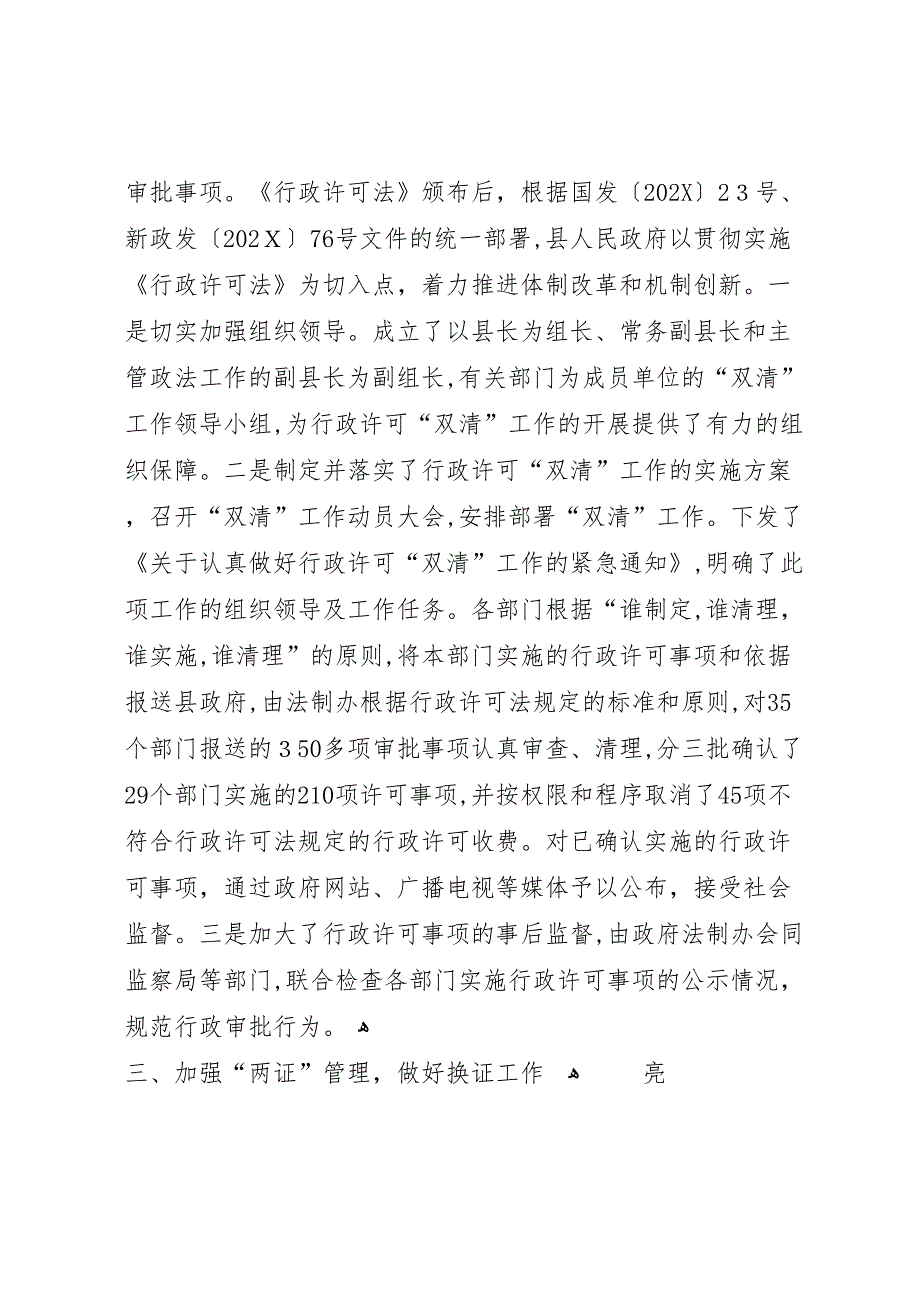 审批事项。《行政许可法》颁布后，根据国发〔202X〕2３号、
新政发〔202Ｘ〕76号文件的统一部署,县人民政府以贯彻实施
《行政许可法》为切入点，着力推进体制改革和机制创新。一
是切实加强组织领导。成立了以县长为组长、常务副县长和主
管政法工作的副县长为副组长,有关部门为成员单位的“双清”
工作领导小组,为行政许可“双清”工作的开展提供了有力的组
织保障。二是制定并落实了行政许可“双清”工作的实施方案
，召开“双清”工作动员大会,安排部署“双清”工作。下发了
《关于认真做好行政许可“双清”工作的紧急通知》,明确了此
项工作的组织领导及工作任务。各部门根据“谁制定,谁清理，
谁实施,谁清理”的原则,将本部门实施的行政许可事项和依据
报送县政府,由法制办根据行政许可法规定的标准和原则,对35
个部门报送的３50多项审批事项认真审查、清理,分三批确认了
29个部门实施的210项许可事项,并按权限和程序取消了45项不
符合行政许可法规定的行政许可收费。对已确认实施的行政许
可事项，通过政府网站、广播电视等媒体予以公布，接受社会
监督。三是加大了行政许可事项的事后监督,由政府法制办会同
监察局等部门,联合检查各部门实施行政许可事项的公示情况，
规范行政审批行为。 ﻬ
三、加强“两证”管理，做好换证工作 ﻬ 亮